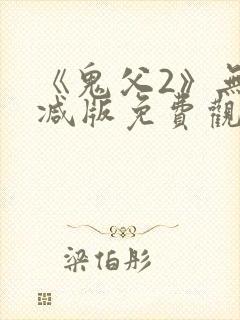 《鬼父2》無
减版免費觀
梁伯彤